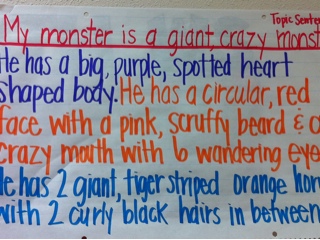 Topic Sente
My monster is a giant, crazy monst
He has a big, purple, spotted heart
shaped body. He has a circular, red
face with a pink, scruffy beard & a
crazy mouth with 6 wandering eye
He has 2 giant, tiger striped orange horn
with 2 curly black hairs in between